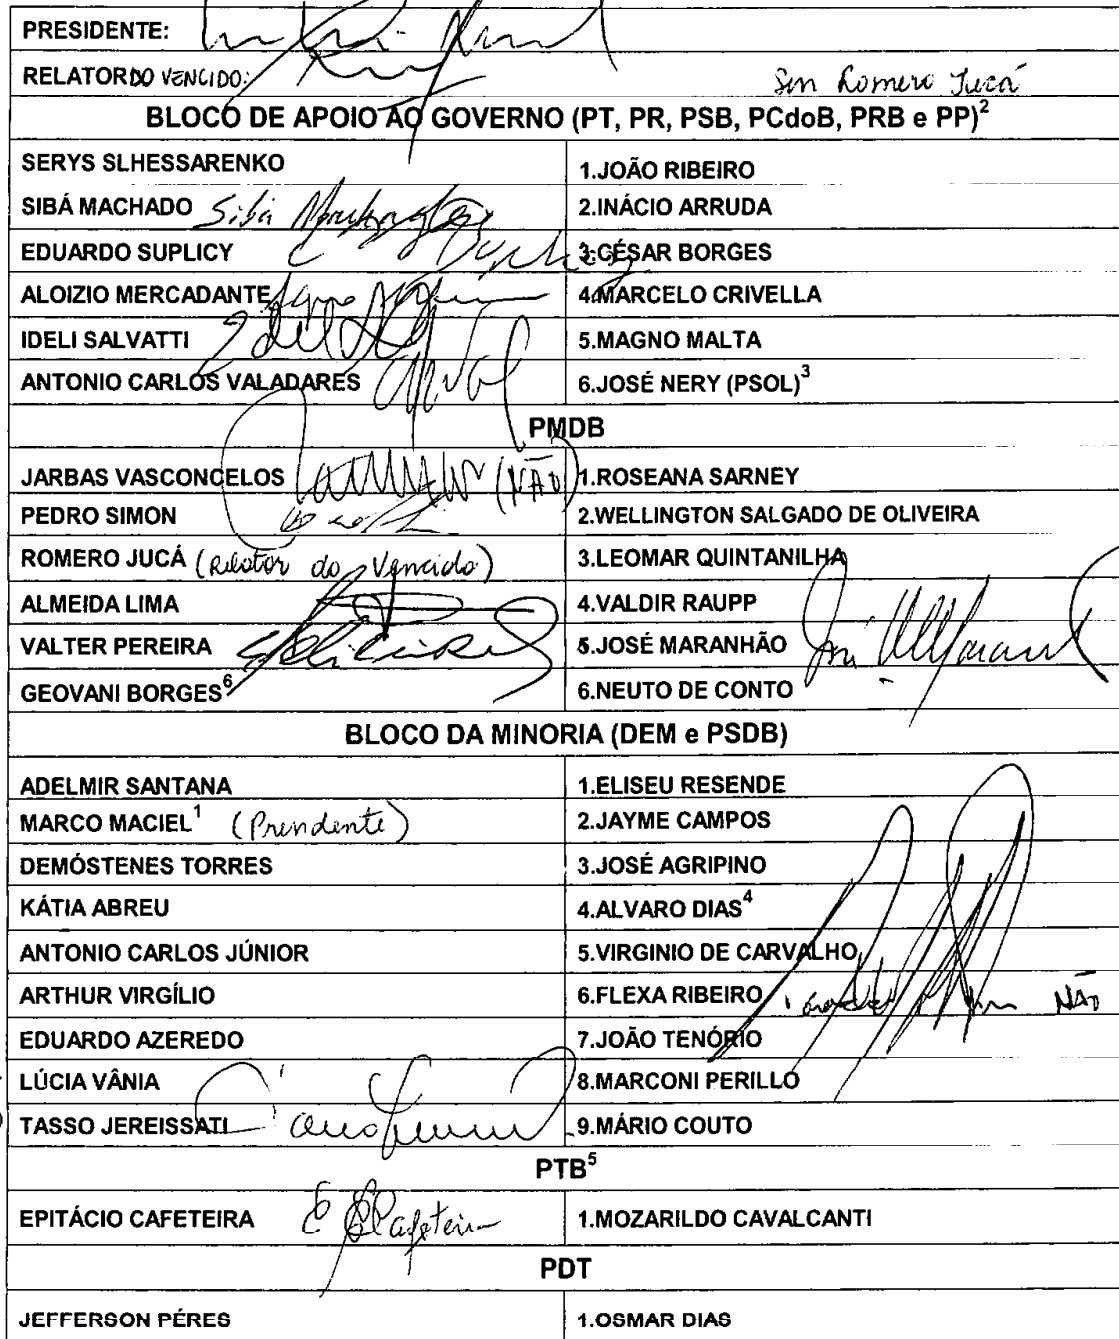 PRESIDENTE:
RELATORDO VENCIDO: Sen Romero Jucá
BLOCO DE APOIO AO GOVERNO (PT, PR, PSB, PCdoB, PRB e PP)2
SERYS SLHESSARENKO 1.JOÃO RIBEIRO
SIBÁ MACHADO Sibá Machado 2.INÁCIO ARRUDA
EDUARDO SUPLICY 3.CÉSAR BORGES
ALOIZIO MERCADANTE 4.MARCELO CRIVELLA
IDELI SALVATTI 5.MAGNO MALTA
ANTONIO CARLOS VALADARES 6.JOSÉ NERY (PSOL)3
PMDB
JARBAS VASCONCELOS (NÃO) 1.ROSEANA SARNEY
PEDRO SIMON 2.WELLINGTON SALGADO DE OLIVEIRA
ROMERO JUCÁ (Relator do Vencido) 3.LEOMAR QUINTANILHA
ALMEIDA LIMA 4.VALDIR RAUPP
VALTER PEREIRA 5.JOSÉ MARANHÃO
GEOVANI BORGES6 6.NEUTO DE CONTO
BLOCO DA MINORIA (DEM e PSDB)
ADELMIR SANTANA 1.ELISEU RESENDE
MARCO MACIEL1 (Presidente) 2.JAYME CAMPOS
DEMÓSTENES TORRES 3.JOSÉ AGRIPINO
KÁTIA ABREU 4.ALVARO DIAS4
ANTONIO CARLOS JÚNIOR 5.VIRGINIO DE CARVALHO
ARTHUR VIRGÍLIO 6.FLEXA RIBEIRO NÃO
EDUARDO AZEREDO 7.JOÃO TENÓRIO
LÚCIA VÂNIA 8.MARCONI PERILLO
TASSO JEREISSATI 9.MÁRIO COUTO
PTB5
EPITÁCIO CAFETEIRA E Cafeteira 1.MOZARILDO CAVALCANTI
PDT
JEFFERSON PÉRES 1.OSMAR DIAS